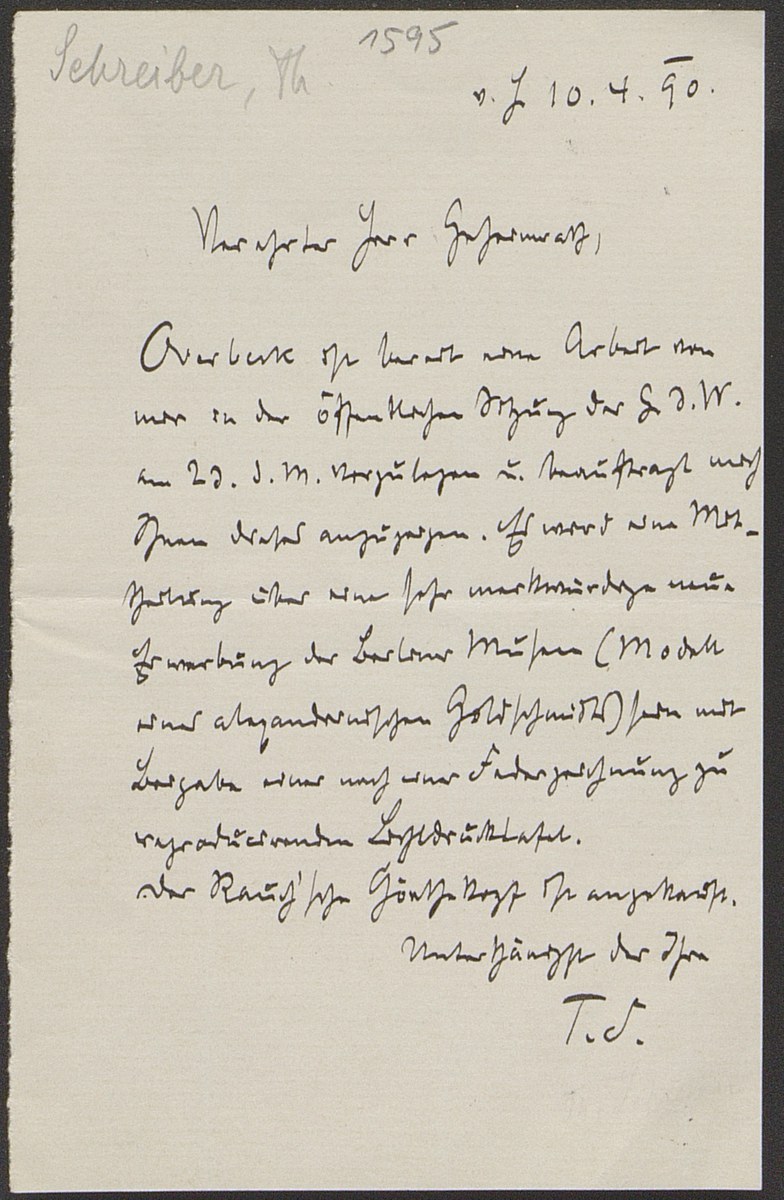 Schreiber, Th
1595
v. H. 10. 4. 90.
Verehrter Herr Geheimrath,
Overbeck ist bereit eine Arbeit von
mir in der öffentlichen Sitzung der G. d. W.
am 23. d. M. vorzulegen u. beauftragt mich
Ihnen dieses anzuzeigen. Es wird eine Mit-
theilung über eine sehr merkwürdige neue
Erwerbung der Berliner Museen (Modell
eines alexandrinischen Goldschmieds) sein mit
Beigabe einer nach einer Federzeichnung zu
reproducirenden Lichtdrucktafel.
Der Rauch'sche Goethekopf ist angekauft.
der Ihre
T. S.